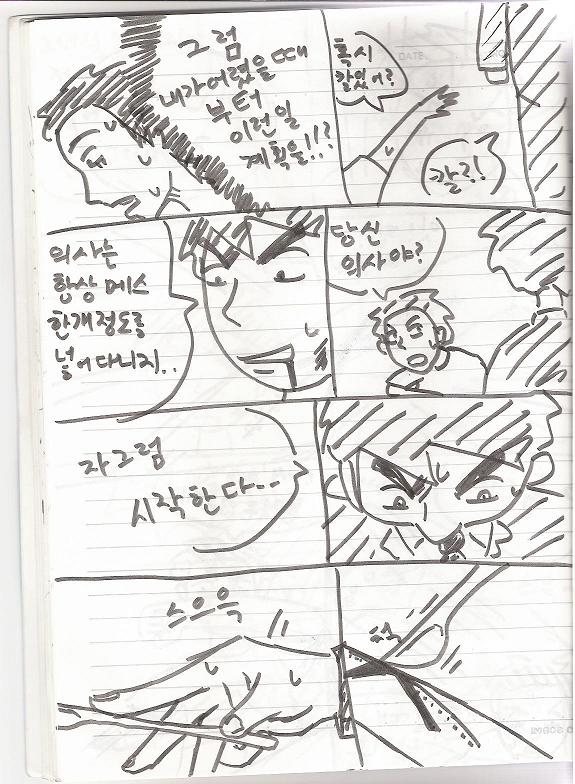 그럼
내가어렸을때
부터
이런일
계획을!!?
혹시
칼있어?
칼?!
의사는
항상 메스
한개정도를
넣어다니지..
당신
의사야?
자그럼
시작한다...
스으윽
척